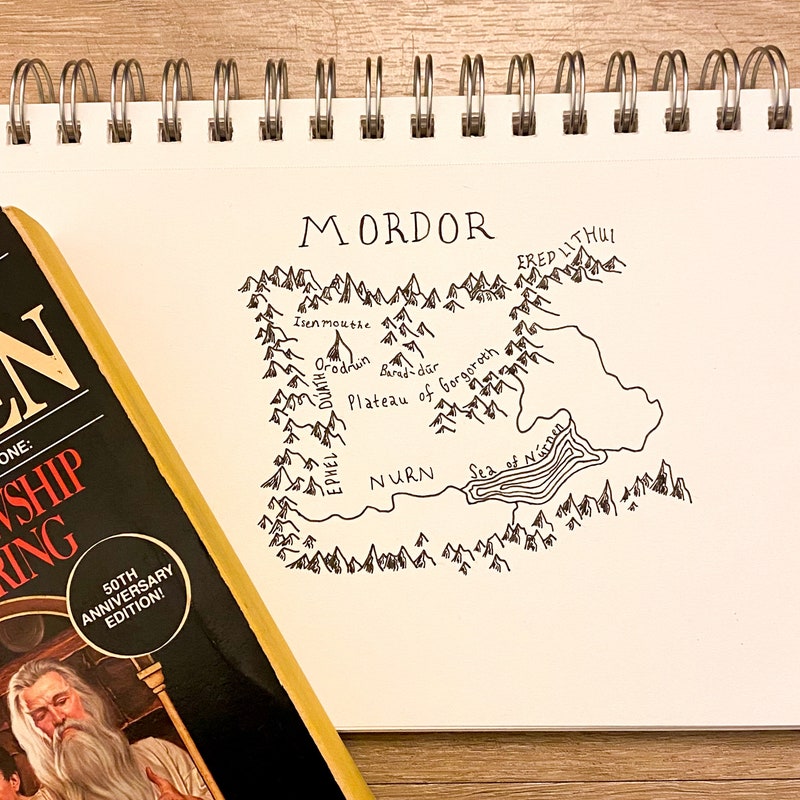 MORDOR
ERED LITHUI
Isenmouthe
Orodruin
Barad-dûr
DÚATH
Plateau of Gorgoroth
EPHEL
NURN
Sea of Nurnen
EN
ONE:
WSHIP
RING
50TH
ANNIVERSARY
EDITION!